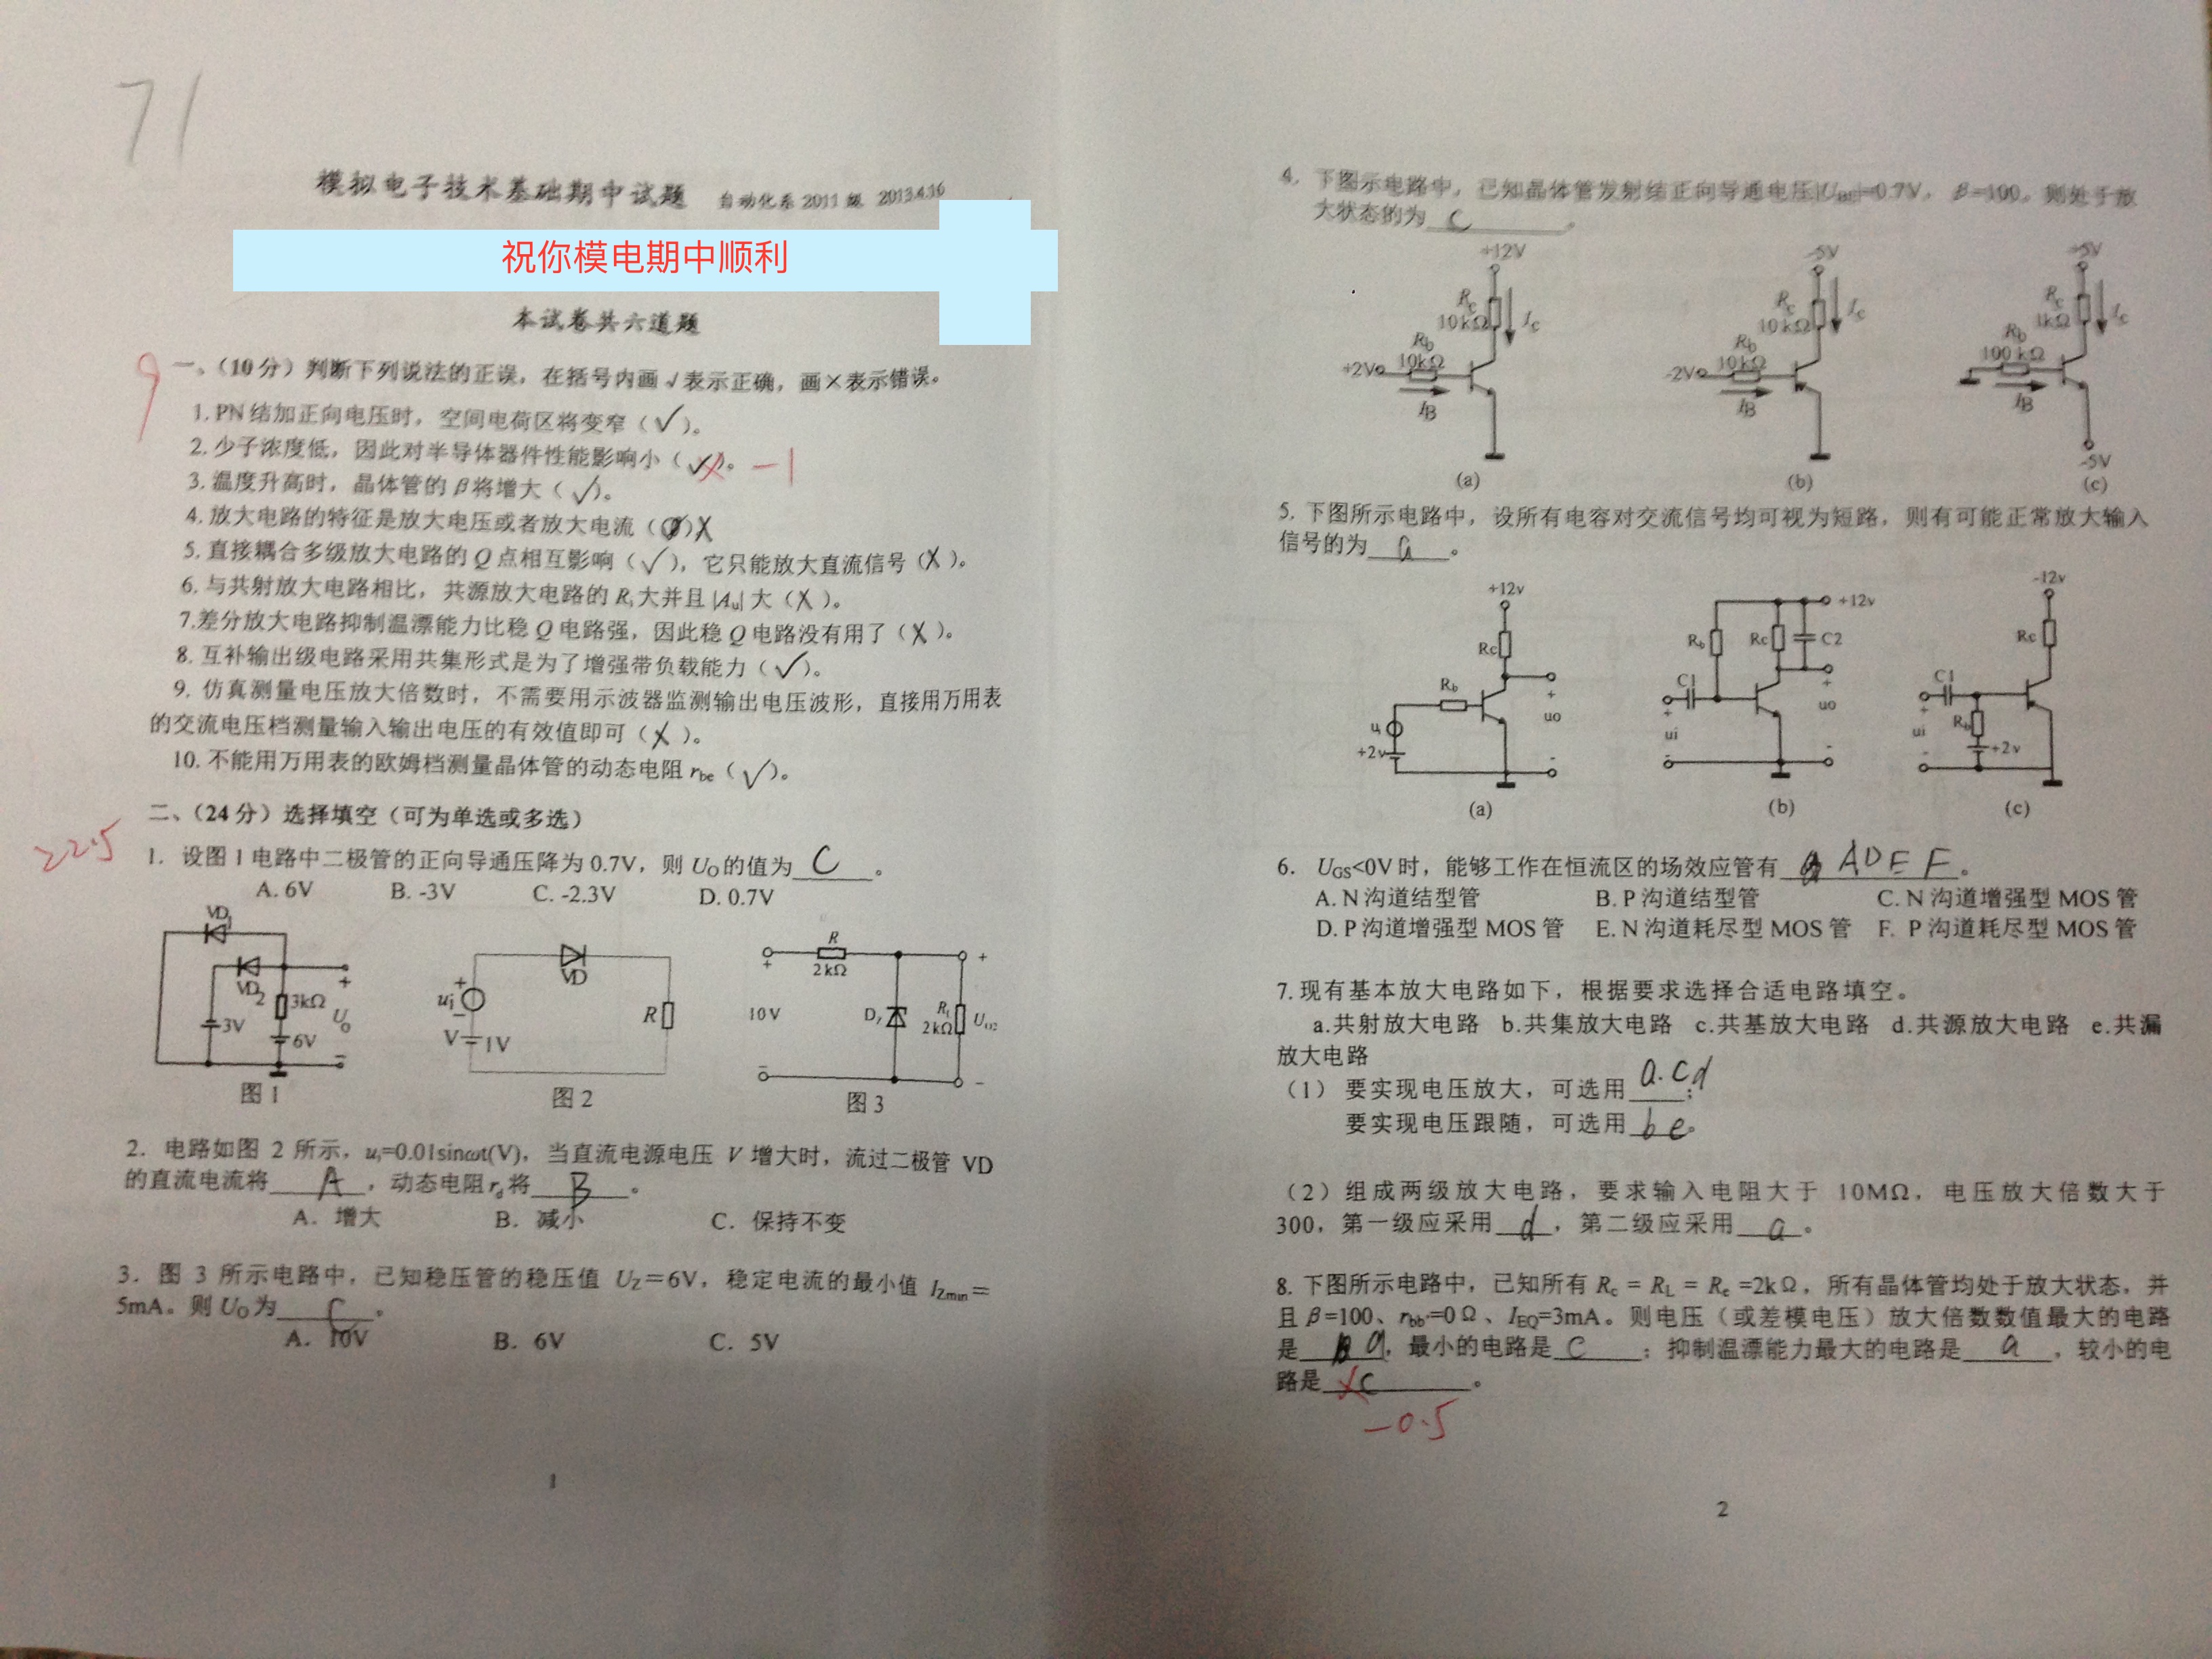 71
模拟电子技术基础期中试题 自动化系 2011 级 2013.4.16
祝你模电期中顺利
本试卷共六道题
9
一、(10 分) 判断下列说法的正误，在括号内画√表示正确，画×表示错误。
1. PN 结加正向电压时，空间电荷区将变窄（√）。
2. 少子浓度低，因此对半导体器件性能影响小（√）。 -1
3. 温度升高时，晶体管的 β 将增大（√）。
4. 放大电路的特征是放大电压或者放大电流（）X
5. 直接耦合多级放大电路的 Q 点相互影响（√），它只能放大直流信号（X）。
6. 与共射放大电路相比，共源放大电路的 Ri 大并且 |Au| 大（X）。
7.差分放大电路抑制温漂能力比稳 Q 电路强，因此稳 Q 电路没有用了（X）。
8. 互补输出级电路采用共集形式是为了增强带负载能力（√）。
9. 仿真测量电压放大倍数时，不需要用示波器监测输出电压波形，直接用万用表
的交流电压档测量输入输出电压的有效值即可（X）。
10. 不能用万用表的欧姆档测量晶体管的动态电阻 rbe（√）。
二、(24 分) 选择填空（可为单选或多选）
22.5
1. 设图 1 电路中二极管的正向导通压降为 0.7V，则 UO 的值为 C 。
A. 6V B. -3V C. -2.3V D. 0.7V
VD1 VD2 3kΩ 3V 6V UO + -
图 1
ui + - VD V 1V R
图 2
R 2kΩ + 10V - DZ RL 2kΩ UO2 + -
图 3
2. 电路如图 2 所示，ui=0.01sinωt(V)，当直流电源电压 V 增大时，流过二极管 VD
的直流电流将 A ，动态电阻 rd 将 B 。
A. 增大 B. 减小 C. 保持不变
3. 图 3 所示电路中，已知稳压管的稳压值 UZ＝6V，稳定电流的最小值 IZmin＝
5mA。则 UO 为 C 。
A. 10V B. 6V C. 5V
1
4. 下图示电路中，已知晶体管发射结正向导通电压|UBE|=0.7V， β=100。则处于放
大状态的为 C 。
+12V Rc 10kΩ Ic Rb 10kΩ +2V IB
(a)
-5V Rc 10kΩ Ic Rb 10kΩ -2V IB
(b)
+5V Rc 1kΩ Ic Rb 100kΩ IB -5V
(c)
5. 下图所示电路中，设所有电容对交流信号均可视为短路，则有可能正常放大输入
信号的为 a 。
+12v Rc Rb ui +2v + uo -
(a)
+12v Rb Rc C2 C1 + ui - + uo -
(b)
-12v Rc C1 + ui - Rb +2v
(c)
6. UGS<0V 时，能够工作在恒流区的场效应管有 A D E F 。
A. N 沟道结型管 B. P 沟道结型管 C. N 沟道增强型 MOS 管
D. P 沟道增强型 MOS 管 E. N 沟道耗尽型 MOS 管 F. P 沟道耗尽型 MOS 管
7. 现有基本放大电路如下，根据要求选择合适电路填空。
a.共射放大电路 b.共集放大电路 c.共基放大电路 d.共源放大电路 e.共漏
放大电路
（1） 要实现电压放大，可选用 a.c d ；
要实现电压跟随，可选用 b e 。
（2）组成两级放大电路，要求输入电阻大于 10MΩ，电压放大倍数大于
300，第一级应采用 d ，第二级应采用 a 。
8. 下图所示电路中，已知所有 Rc = RL = Re =2kΩ，所有晶体管均处于放大状态，并
且 β=100、rbb'=0Ω、IEQ=3mA。则电压（或差模电压）放大倍数数值最大的电路
是 a ，最小的电路是 C ；抑制温漂能力最大的电路是 a ，较小的电
路是 C 。
-0.5
2